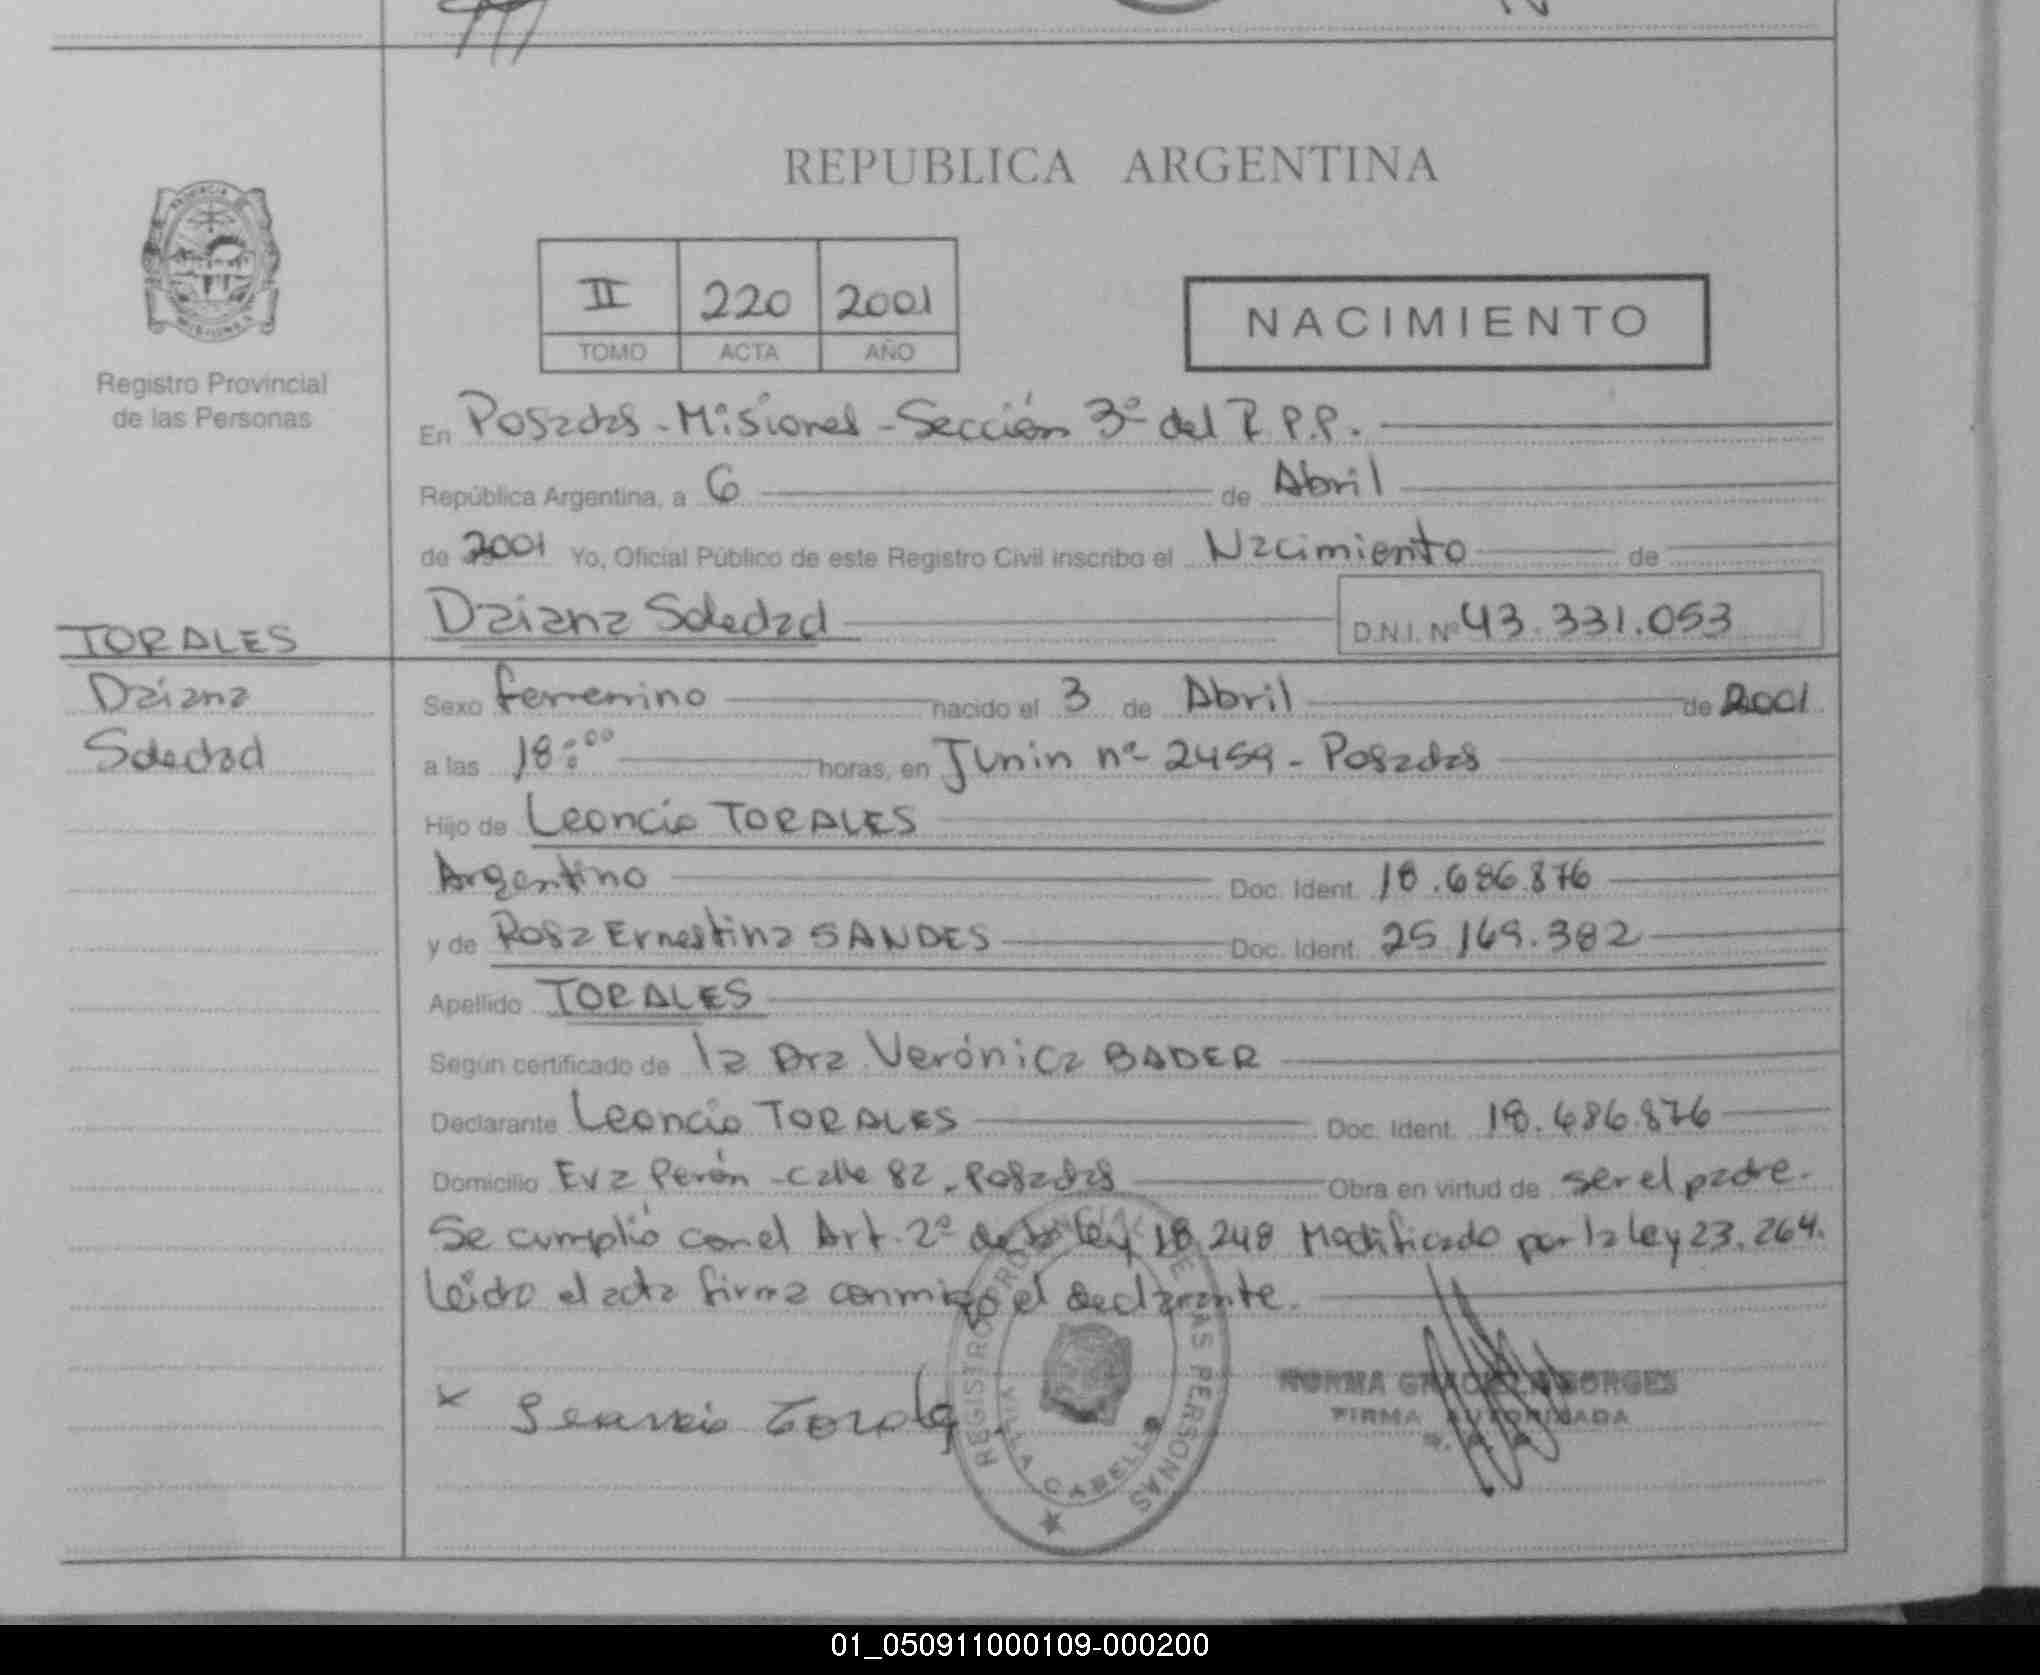 REPUBLICA ARGENTINA
II 220 2001
TOMO ACTA AÑO
NACIMIENTO
Registro Provincial
de las Personas
En Posadas - Misiones - Sección 3º del R.P.P.
República Argentina, a 6 de Abril
de 2001 Yo, Oficial Público de este Registro Civil inscribo el Nacimiento de
Daiana Soledad D.N.I. Nº 43.331.053
TORALES
Daiana
Soledad
Sexo femenino nacido el 3 de Abril de 2001
a las 18:00 horas, en Junin nº 2459 - Posadas
Hijo de Leoncio TORALES
Argentino Doc. Ident. 18.686.876
y de Rosa Ernestina SANDES Doc. Ident. 25.169.382
Apellido TORALES
Según certificado de la Dra Verónica BADER
Declarante Leoncio TORALES Doc. Ident. 18.686.876
Domicilio Eva Perón - calle 82 - Posadas Obra en virtud de ser el padre.
Se cumplió con el Art. 2º de la ley 18.248 Modificado por la ley 23.264.
Leído el acta firma conmigo el declarante.
x Leoncio Torales
REGISTRO PROVINCIAL DE LAS PERSONAS
VILLA CABELLO
NORMA GRACIELA BORGES
FIRMA AUTORIZADA
01_050911000109-000200